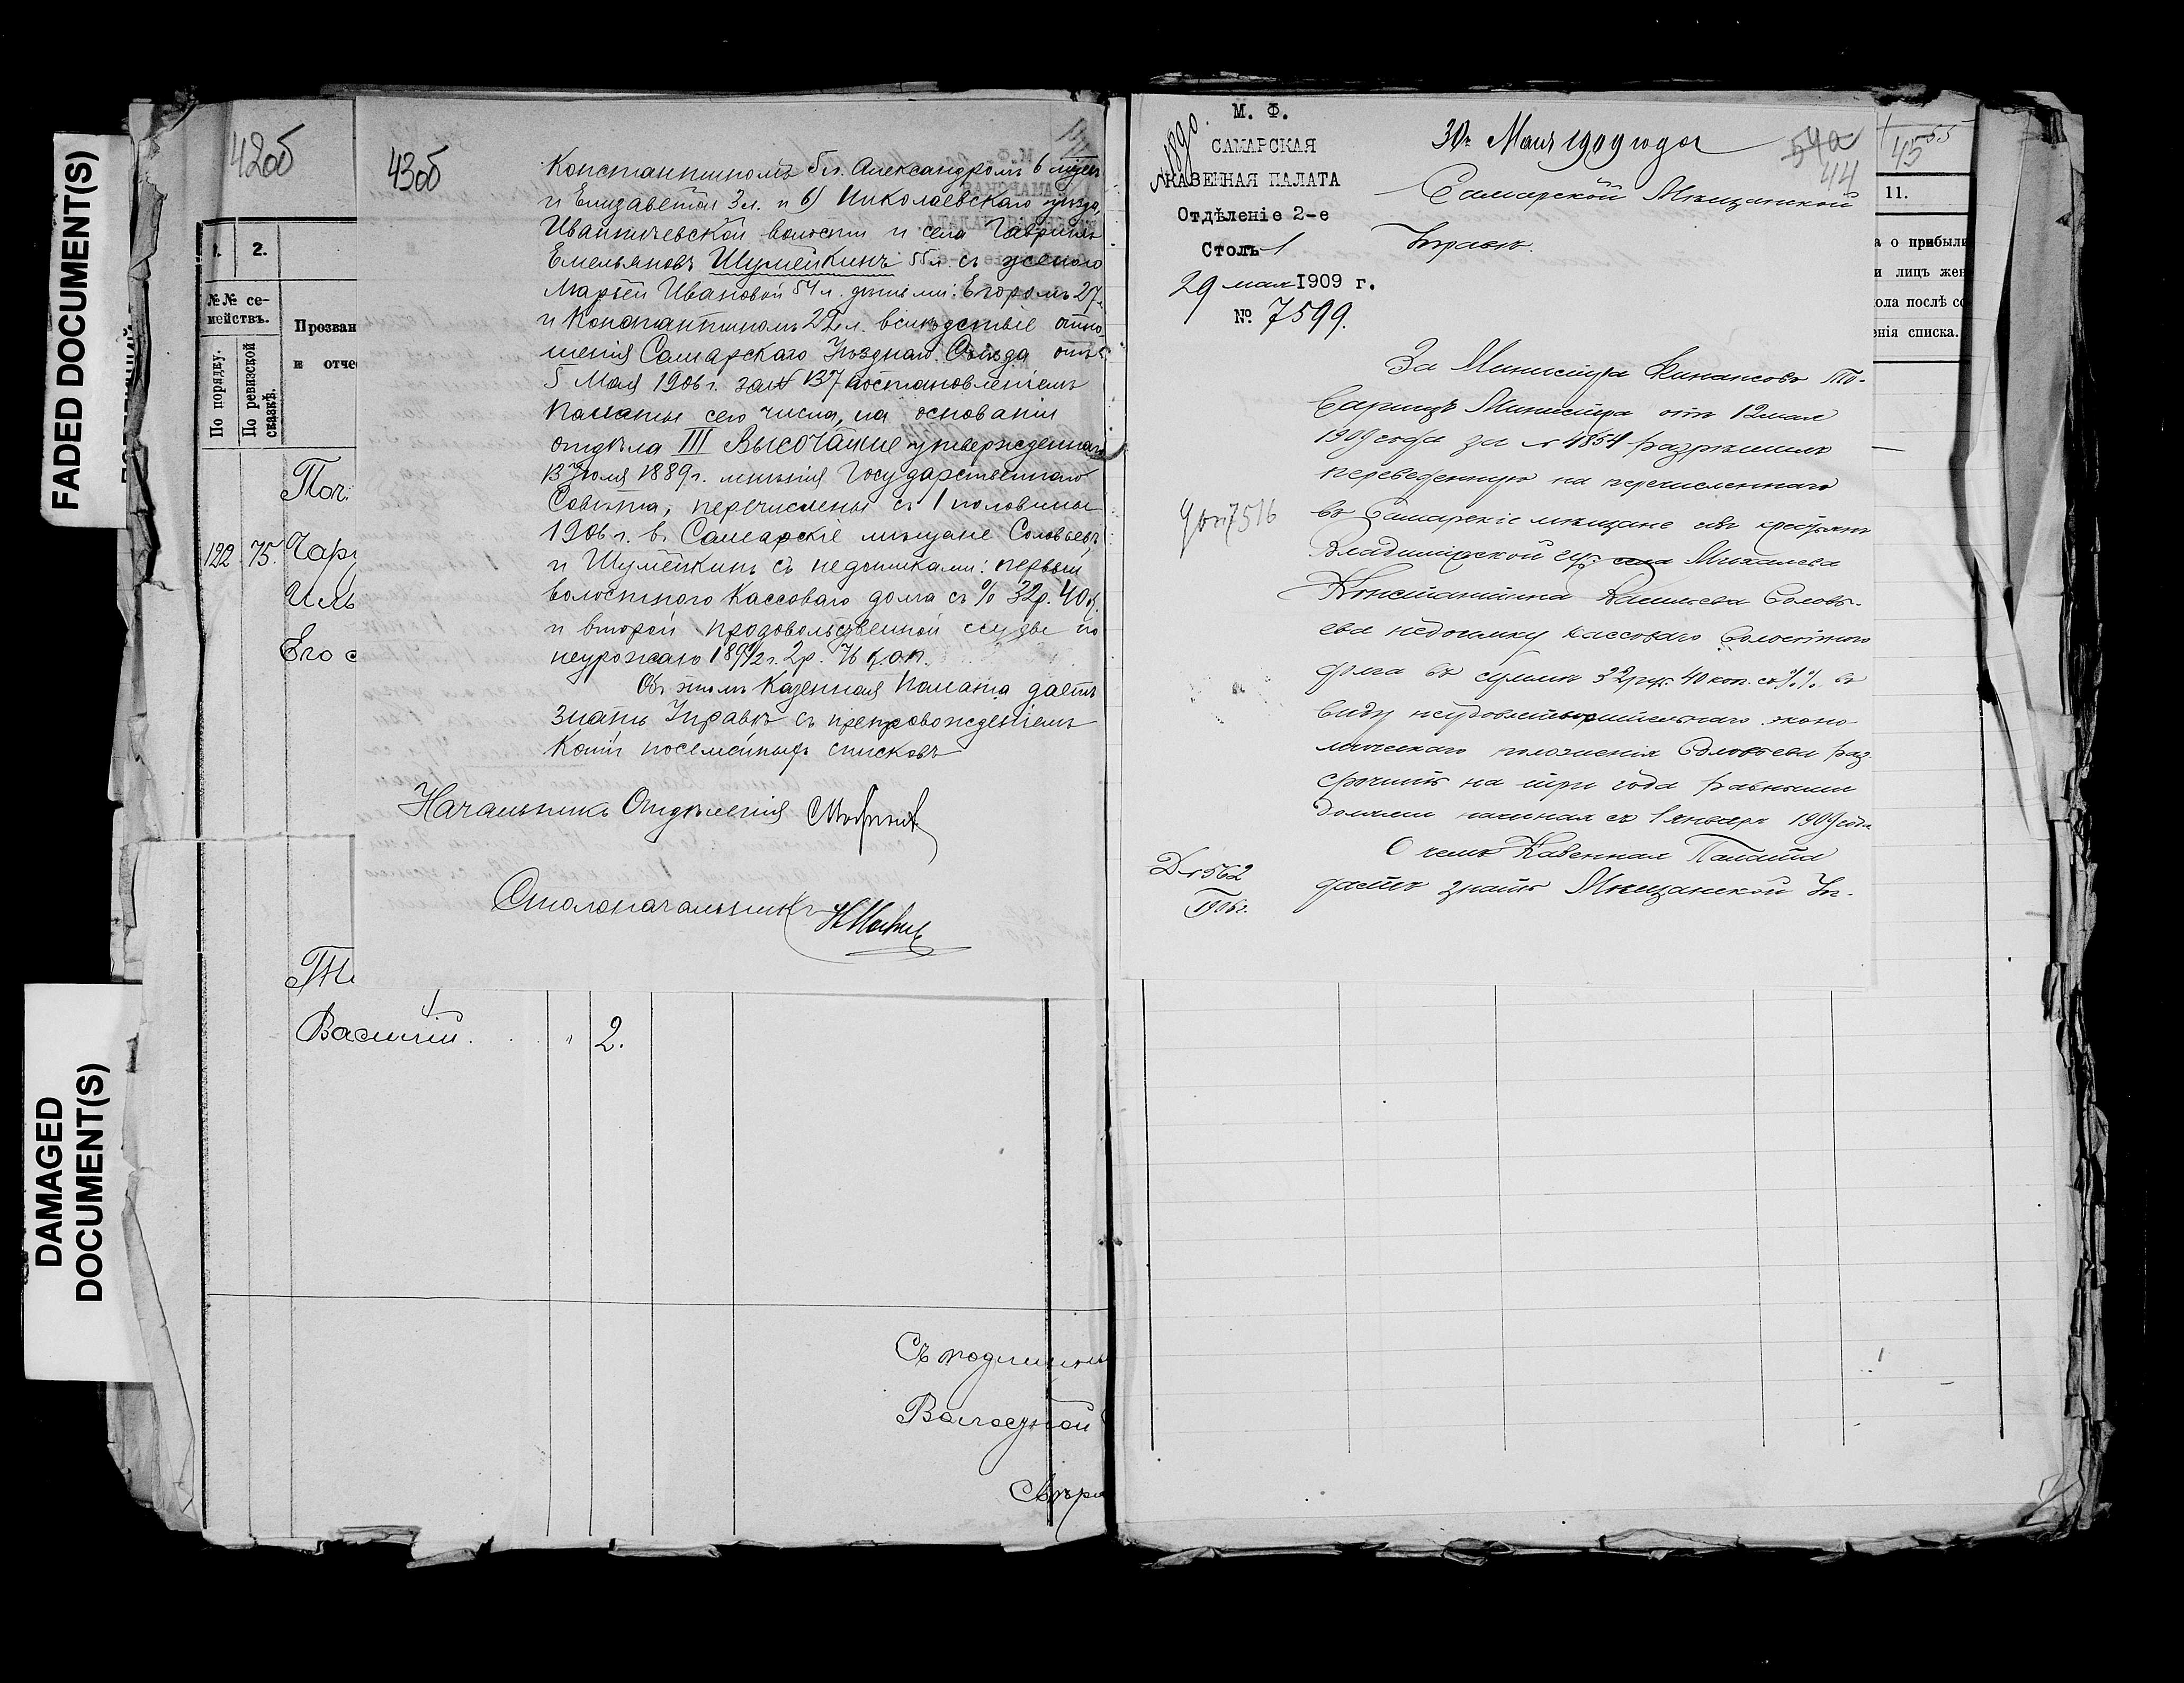 FADED DOCUMENT(S)
DAMAGED
DOCUMENT(S)
42об
1.
2.
№№ се-
мействъ.
По порядку.
По ревизской
сказкѣ.
Прозван
и отче
Поч
122. 75. Чар
Иль
Его с
Василій. " 2.
Съ подлинны
Волостной
Свѣря
43об
Константиномъ 5 л. Александромъ 6 мѣсяц
и Елизаветой 3 л. и б) Николаевскаго уѣзда,
Ивантеевской волости и села Гавріилъ
Емельяновъ Шумейкинъ 55 л. съ женою
Марьей Ивановой 54 л. дѣтьми: Егоромъ 27 л.
и Константиномъ 22 л. вслѣдствіе отно-
шенія Самарскаго Уѣзднаго Съѣзда отъ
5 Мая 1906 г. за № 137 постановленіемъ
Палаты сего числа, на основаніи
отдѣла III Высочайше утвержденнаго
13 Іюля 1889 г. мнѣнія Государственнаго
Совѣта, перечислены съ 1 половины
1906 г. въ Самарскіе мѣщане Соловьевъ
и Шумейкинъ съ недоимками: первый
волостного кассоваго долга съ % 32 р. 40 к.
и второй продовольственной ссуды по
неурожаю 1891/2 г. 2 р. 76 коп.
Объ этомъ Казенная Палата даетъ
знать Управѣ съ препровожденіемъ
копій посемейныхъ списковъ
Начальникъ Отдѣленія
Столоначальникъ
М. Ф.
САМАРСКАЯ
КАЗЕННАЯ ПАЛАТА
Отдѣленіе 2-е
Столъ 1
29 мая 1909 г.
№ 7599.
30 Мая 1909 года
54а
44
Самарской Мѣщанской
Управѣ.
За Министра Финансовъ То-
варищъ Министра отъ 12 мая
1909 года за № 4854 разрѣшилъ
переведенную на перечисленнаго
въ Самарскіе мѣщане изъ крестьянъ
Владимірской губ. Михалева
Константина Васильева Соловь-
ева недоимку кассоваго волостного
долга въ суммѣ 32 руб. 40 коп. съ %% въ
виду неудовлетворительнаго эконо
мическаго положенія Соловьева раз
срочить на три года равными
долями начиная съ 1 января 1909 года
О чемъ Казенная Палата
даетъ знать Мѣщанской Уп-
7516
Д № 562
1906 г.
45
55
11.
а о прибыли
и лицъ жен
ола послѣ со
енія списка.